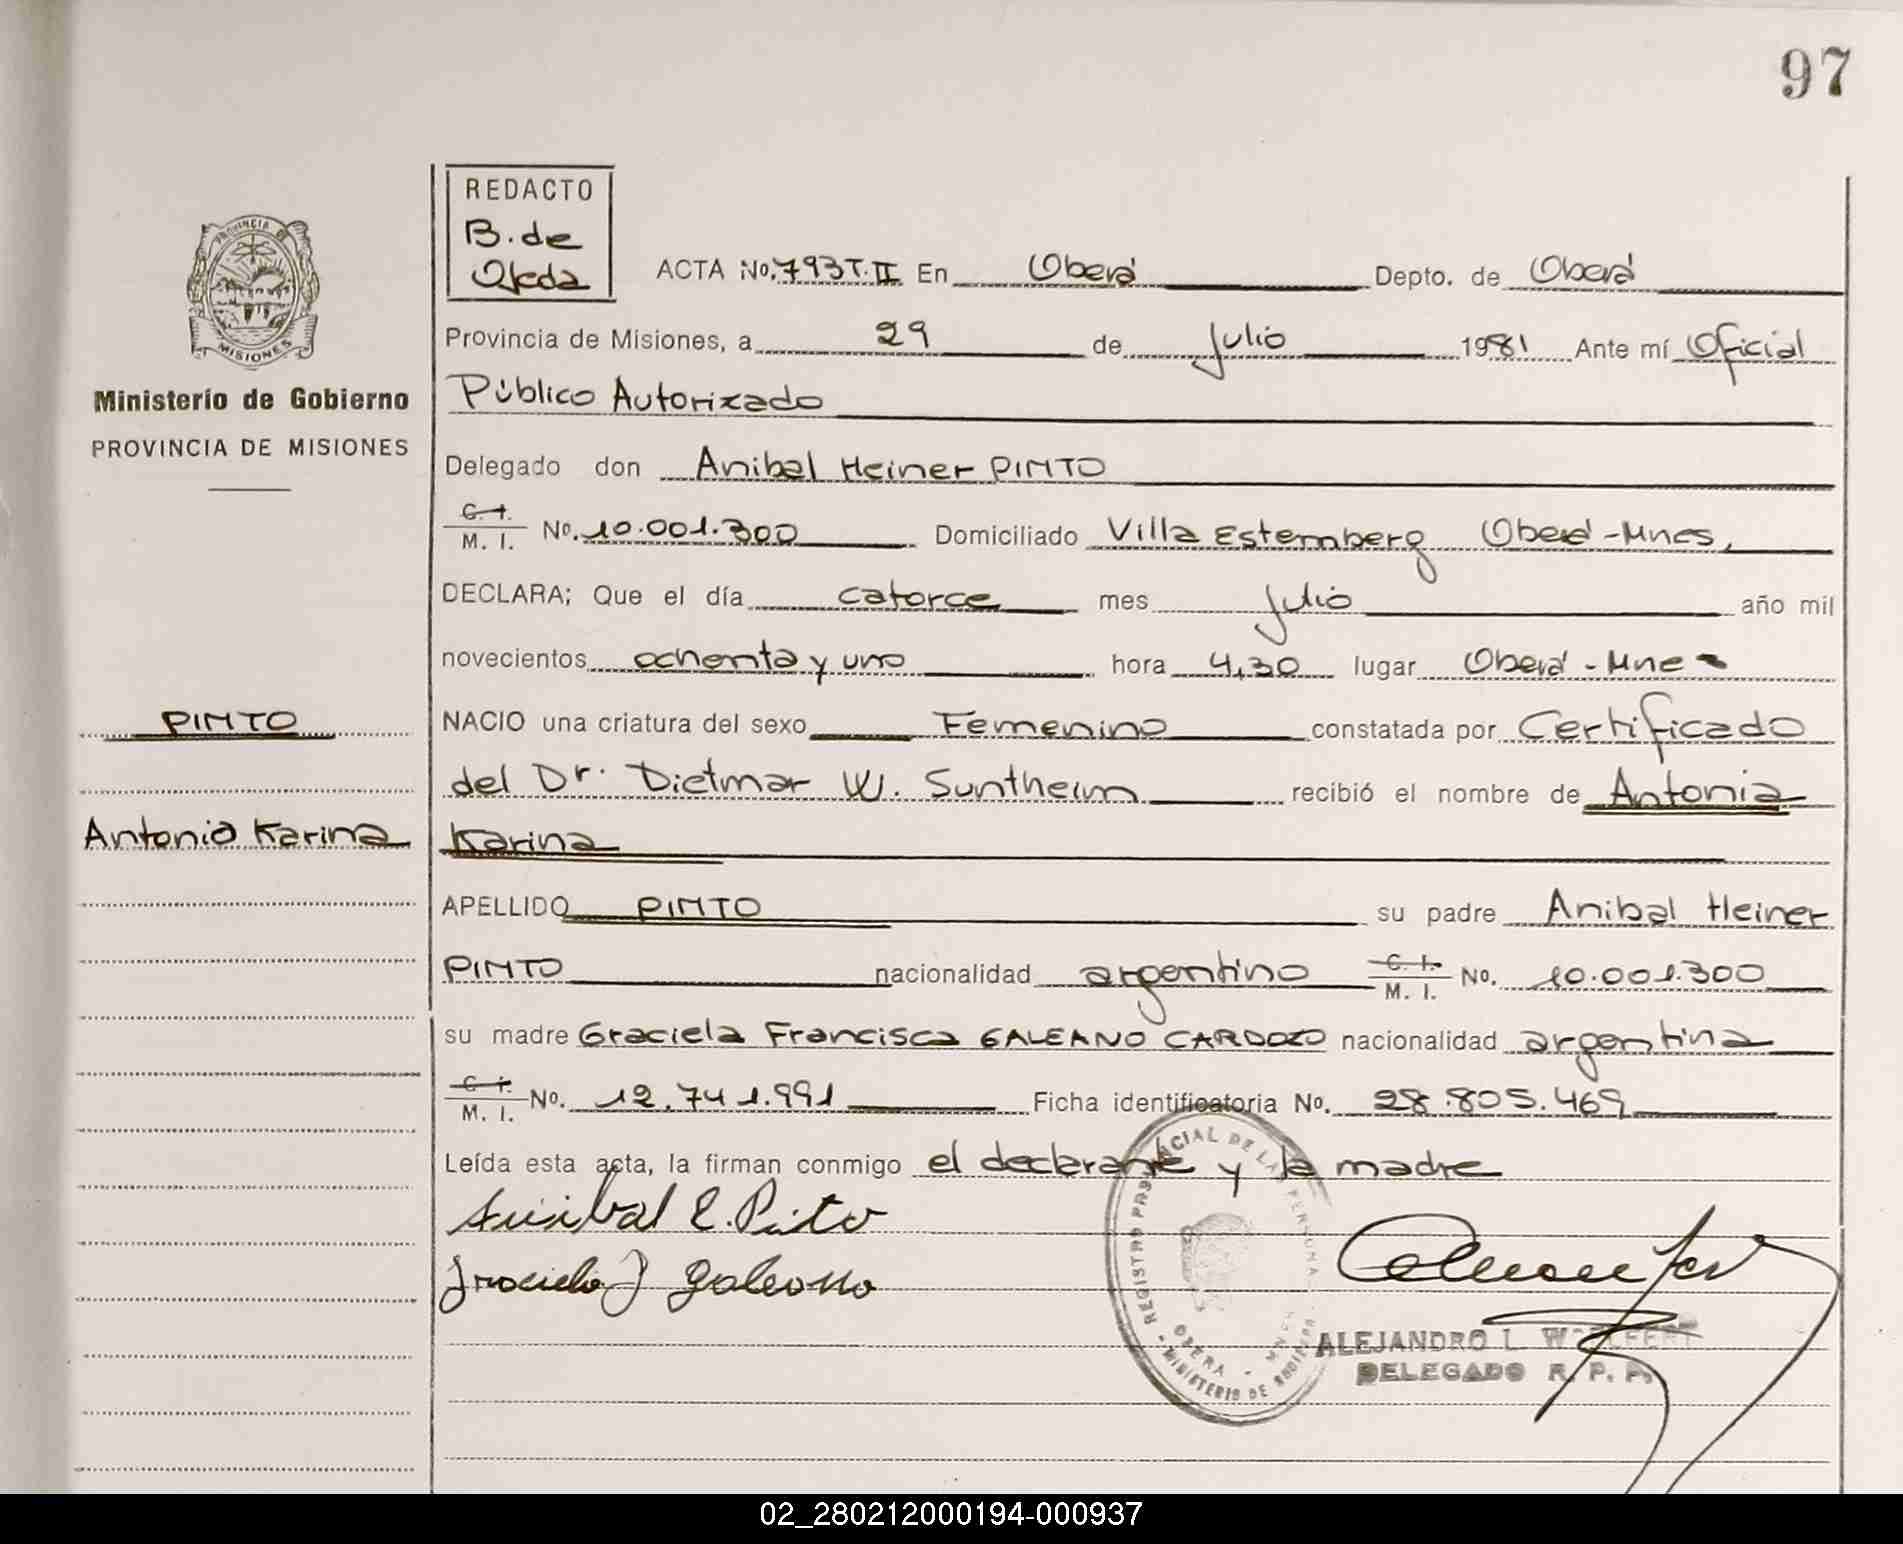 97
REDACTO
B. de
Ojeda
ACTA No. 793 T. II En Oberá Depto. de Oberá
PROVINCIA DE
MISIONES
Provincia de Misiones, a 29 de Julio 1981 Ante mí Oficial
Ministerio de Gobierno
Público Autorizado
PROVINCIA DE MISIONES
Delegado don Anibal Heiner PINTO
C. I.
M. I. No. 10.001.300 Domiciliado Villa Estemberg Oberá - Mnes,
DECLARA; Que el día catorce mes Julio año mil
novecientos ochenta y uno hora 4,30 lugar Oberá - Mnes
PINTO
NACIO una criatura del sexo Femenino constatada por Certificado
del Dr. Dietmar W. Suntheim recibió el nombre de Antonia
Antonia Karina
Karina
APELLIDO PINTO su padre Anibal Heiner
PINTO nacionalidad argentino C. I.
M. I. No. 10.001.300
su madre Graciela Francisca GALEANO CARDOZO nacionalidad argentina
C. I.
M. I. No. 12.741.991 Ficha identificatoria No. 28.805.469
Leída esta acta, la firman conmigo el declarante y la madre
Anibal E. Pinto
Graciela F Galeano
REGISTRO PROVINCIAL DE LA
OBERA - MNES
MINISTERIO DE
ALEJANDRO L
DELEGADO R. P. P.
02_280212000194-000937